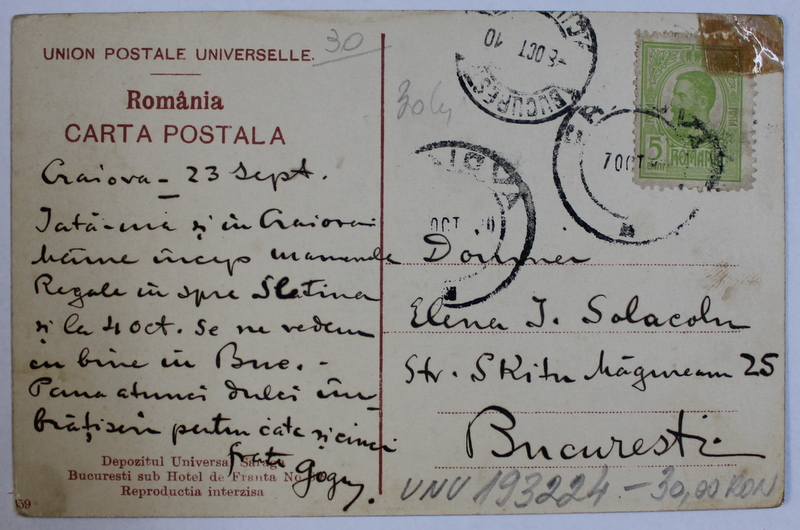 UNION POSTALE UNIVERSELLE.
30
România
CARTA POSTALA
Craiova – 23 Sept.
Iată-mă și în Craiova
Mâine încep manevrele
Regale în spre Slatina
și la 4 oct. Se ne vedem
cu bine în Buc. -
Pana atunci dulci îm-
brățiseri pentru
frate
Gogu.
Depozitul Universal Saraga
Bucuresti sub Hotel de Franta No
Reproductia interzisa
59
30 lei
BUCUREST
-8 OCT 10
7 OCT
OCT 10
5
BANI
ROMANIA
Domniei
Elena I. Solacolu
Str. Skitu Măgureanu 25
Bucuresti
VNV 193224 – 30,00 RON